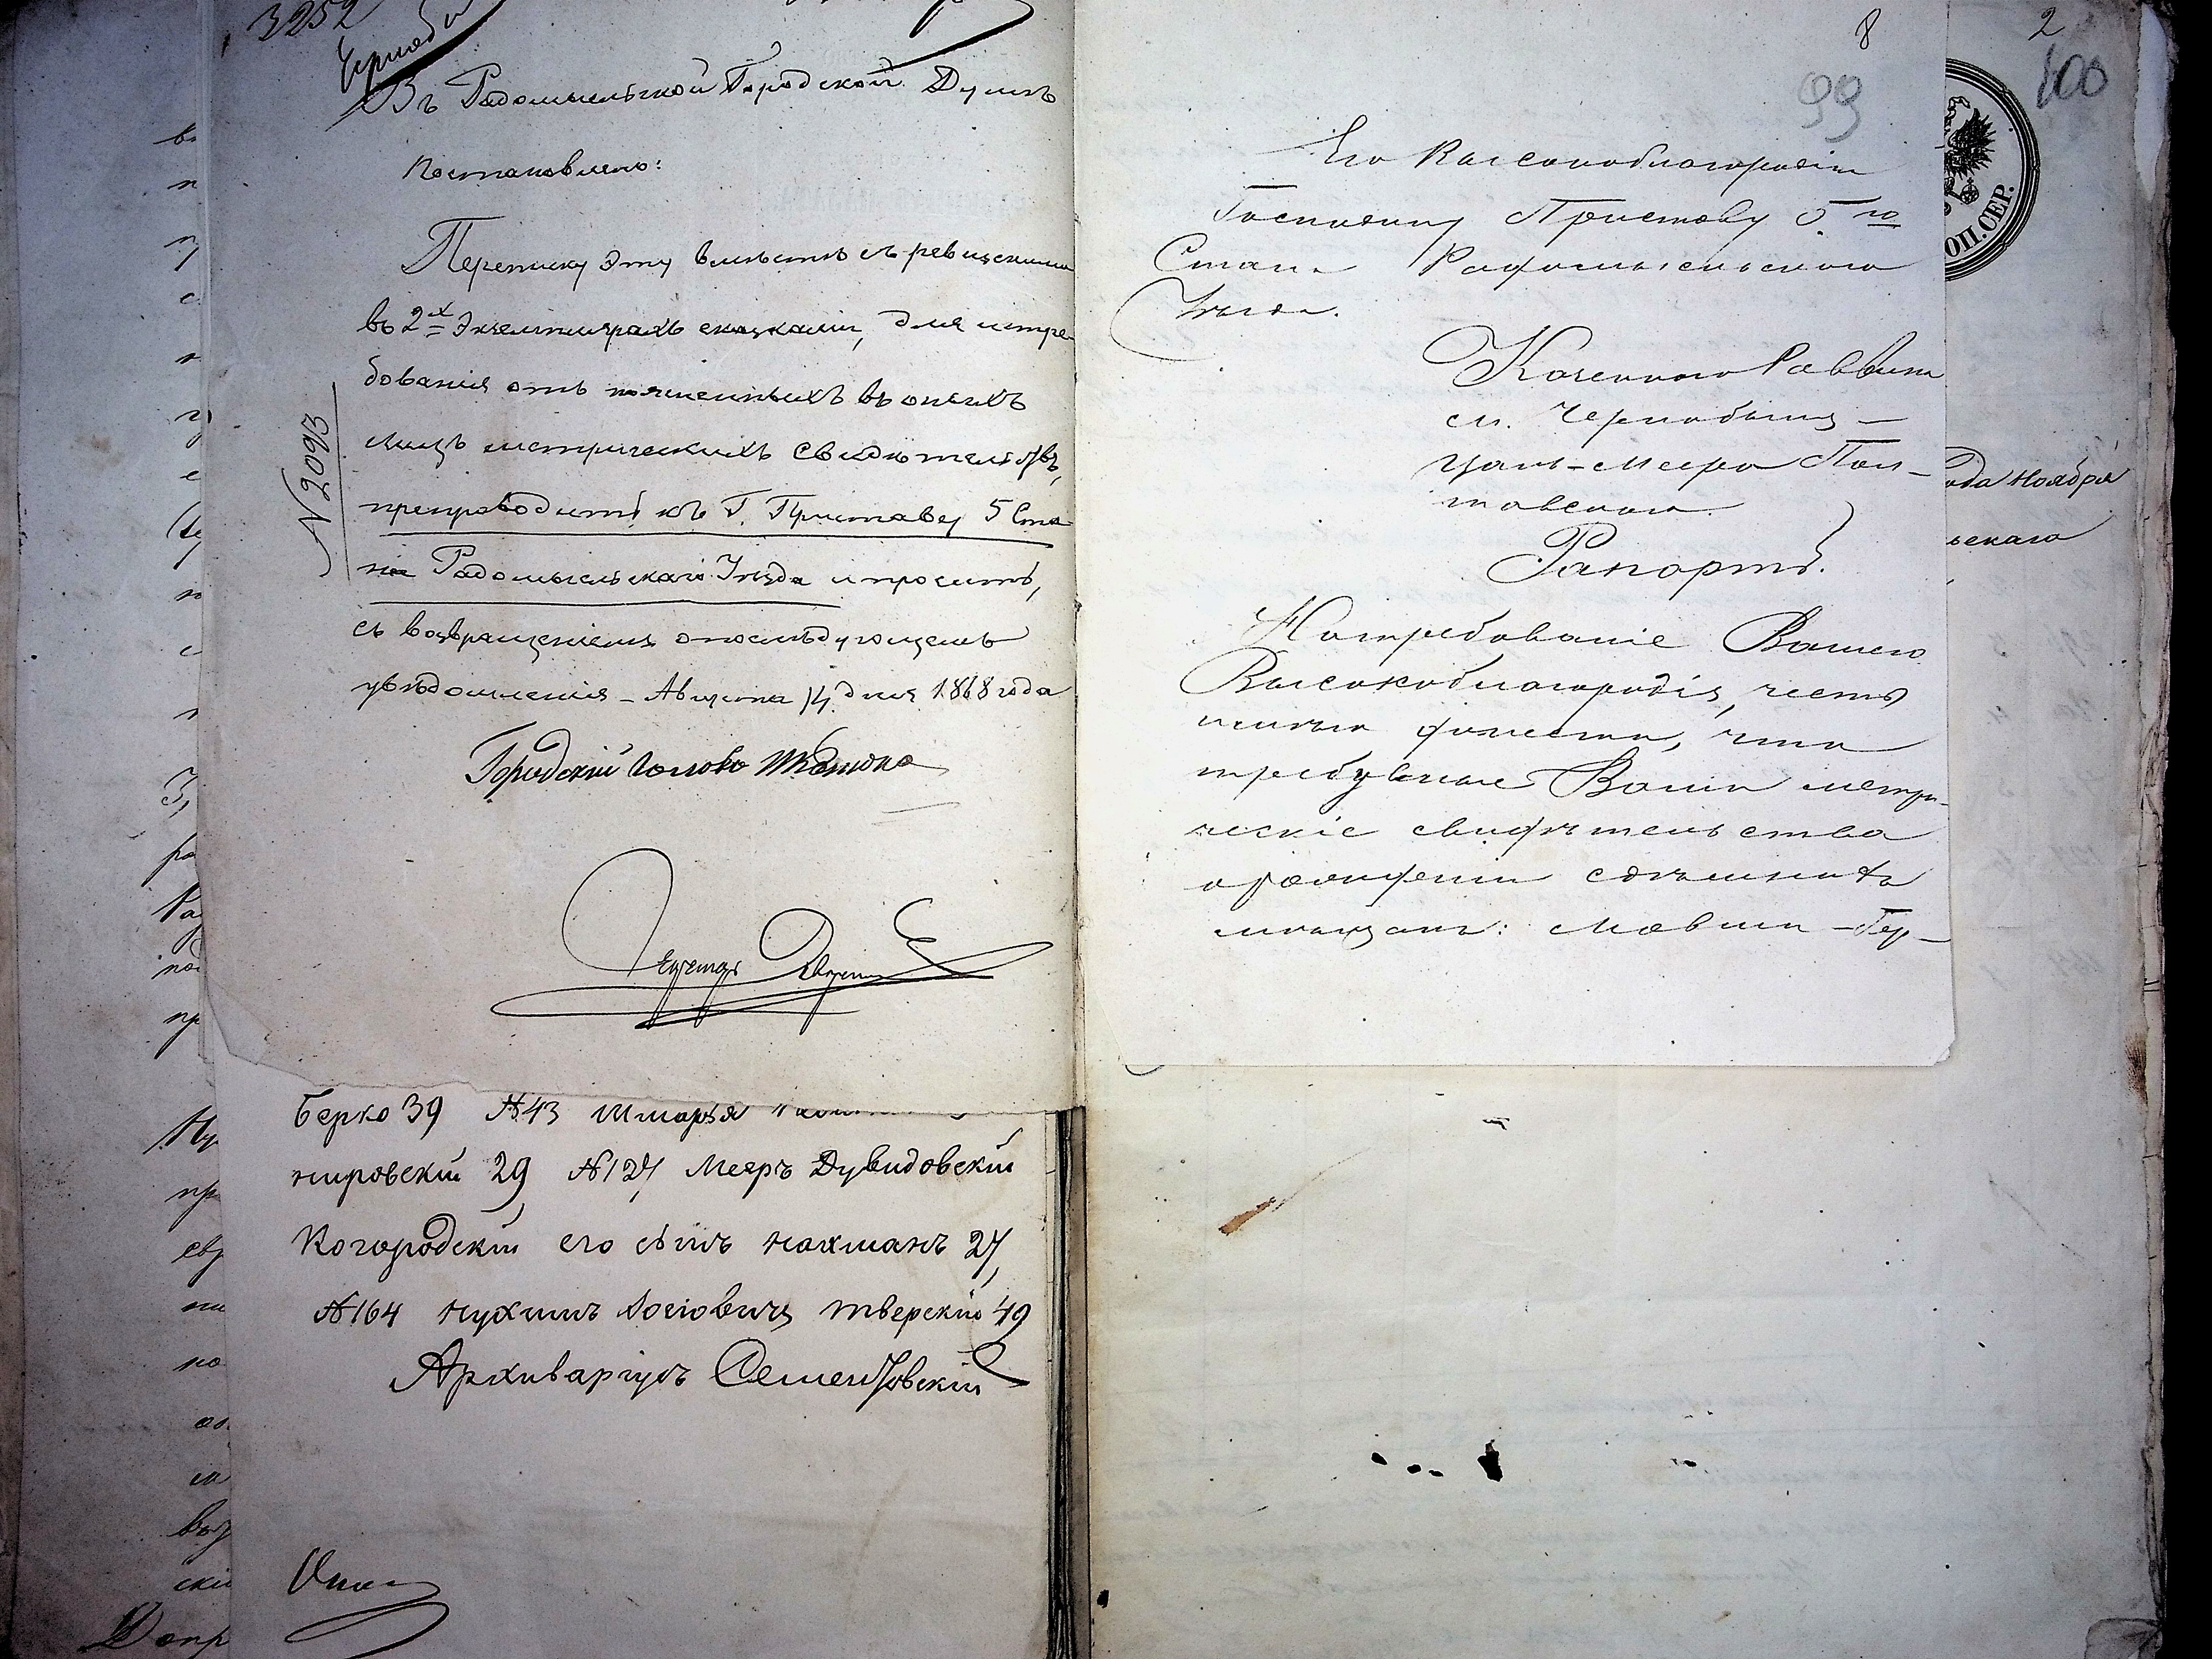 3252
Въ Радомысльской Городской Думѣ
Постановлено:
Переписку эту вмѣстѣ съ ревизскими
въ 2х экземплярахъ сказками, для истре-
бованія отъ поименныхъ въ оныхъ
лицъ метрическихъ свидѣтельствъ,
препроводить къ Г. Приставу 5 Ста-
на Радомысльскаго Уѣзда и просить,
съ возвращеніемъ о послѣдующемъ
увѣдомленія – Августа 14 дня 1868 года
N 2093
Городской Голова
Берко 39 №43 Шмарья
нировскій 29, №127 Мееръ Дувидовскій
Когородскій его сынъ Нахманъ 27,
№164 Нухимъ Іосіовичъ Тверскій 49
Архиваріусъ
8
99
Его Высокоблагородію
Господину Приставу 5го
Стана Радомысльского
Уѣзда.
Казенного Раввина
м. Чернобыля –
Мееро Пол-
товского.
Рапортъ.
На требованіе Вашего
Высокоблагородія, честь
имѣю донести, что
требуемые Вами метри-
ческіе свидѣтельства
о рожденіи
мѣщанъ: Мовши – Бер-
2
100
ОП.СЕР.
ода Ноября
ьскаго